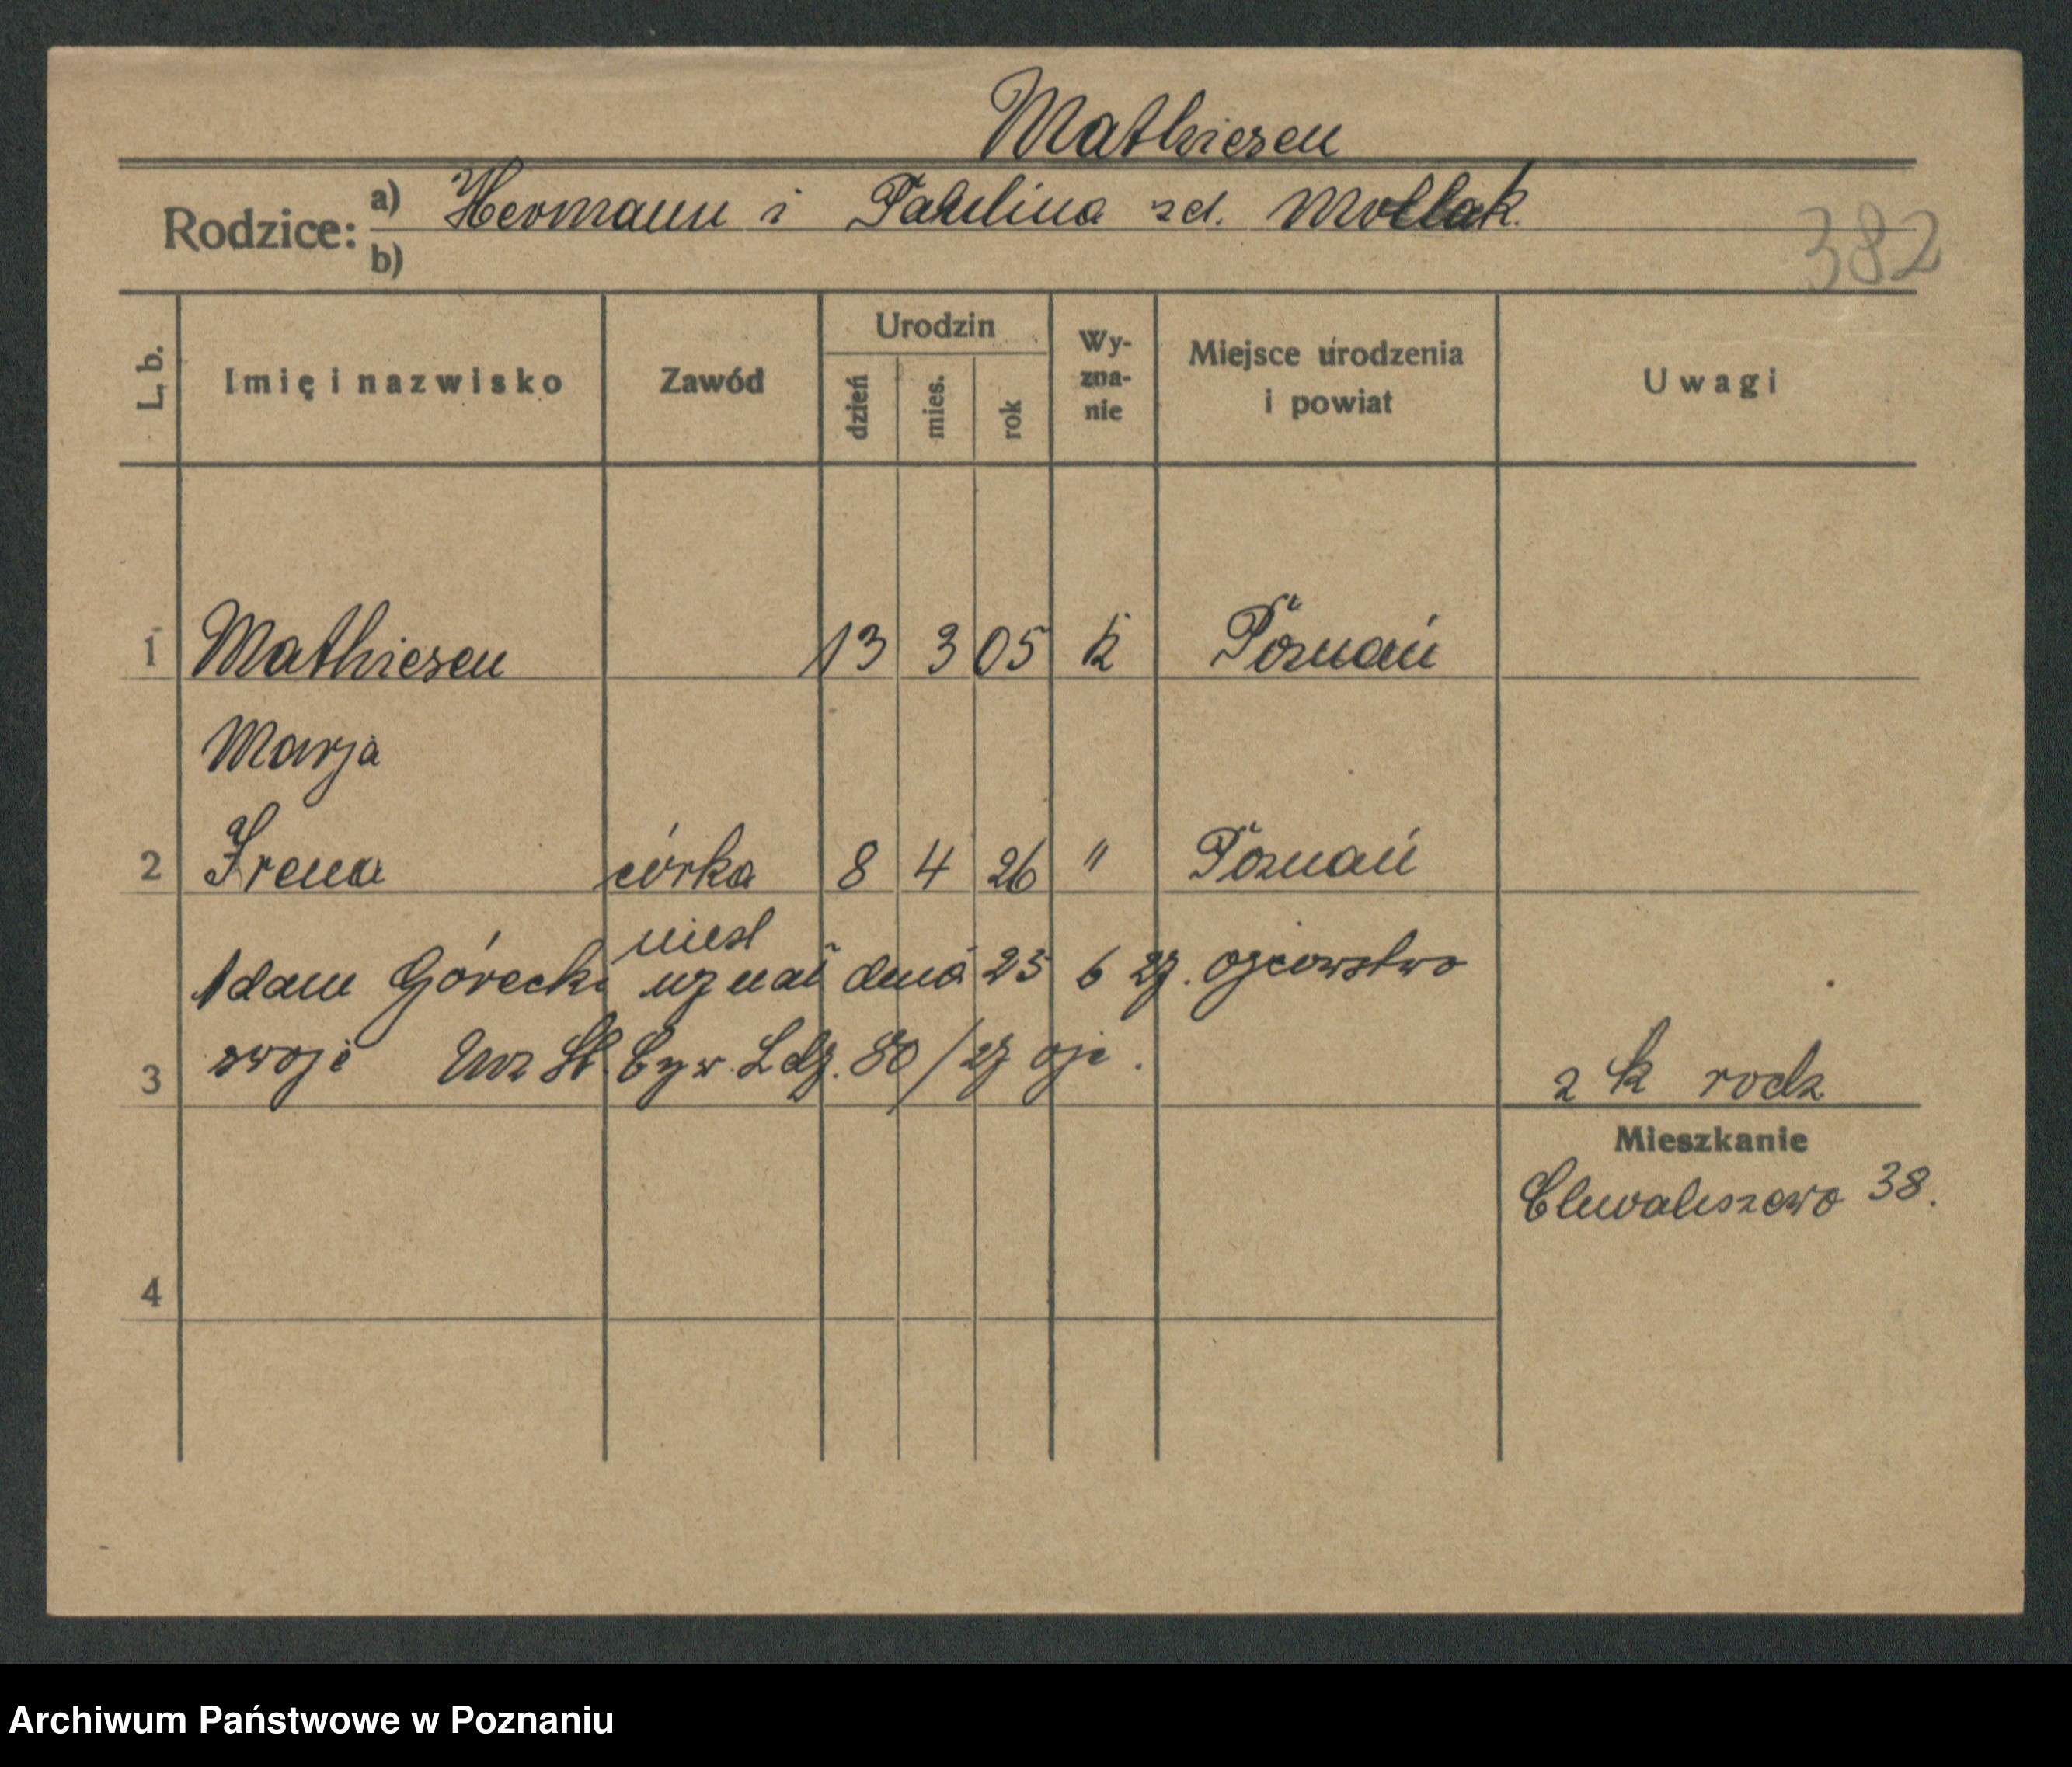 Mathiesen
Rodzice: a) Hermann i Paulina zd. Mollak.
b)
382
L. b. Imię i nazwisko Zawód Urodzin dzień mies. rok Wy-zna-nie Miejsce urodzenia i powiat Uwagi
1 Mathiesen 13 3 05 k Poznań
Marja
2 Irena córka 8 4 26 " Poznań
Adam Górecki uznał dnia 25 6 27. ojcowstwo
3 swoje Urz St. Cyw. Ldz. 80/27 ojc.
2 k rodz
Mieszkanie
Chwaliszewo 38.
4
Archiwum Państwowe w Poznaniu